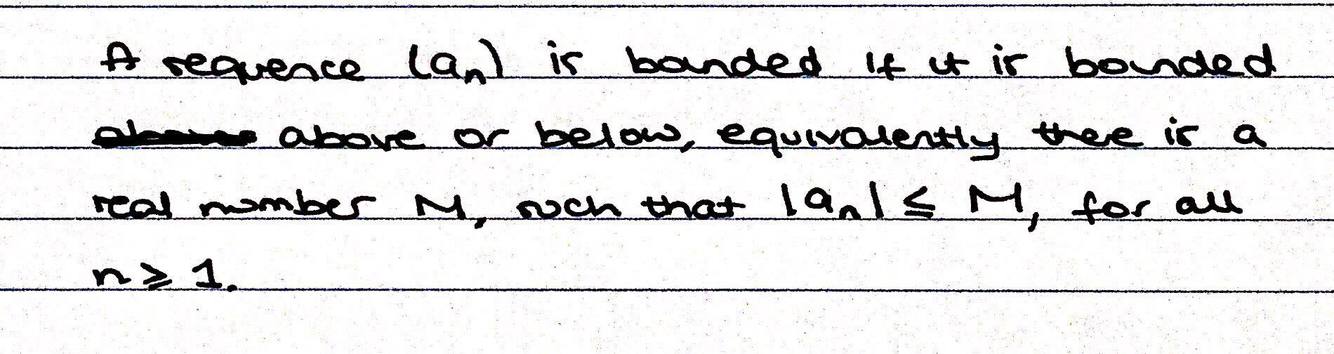 A sequence (aₙ) is bounded if it is bounded
above or below, equivalently there is a
real number M, such that |aₙ| ≤ M, for all
n ⩾ 1.